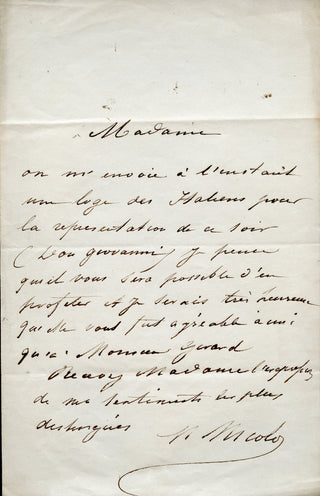 Madame
on m'envoie à l'instant
une loge des Italiens pour
la representation de ce soir
(Don giovanni) Je pense
qu'il vous sera possible d'en
profiter et je serais très heureux
qu'elle vous fut agréable ainsi
qu'a Monsieur Gerard
Recevez Madame l'expression
de mes sentiments les plus
distingués